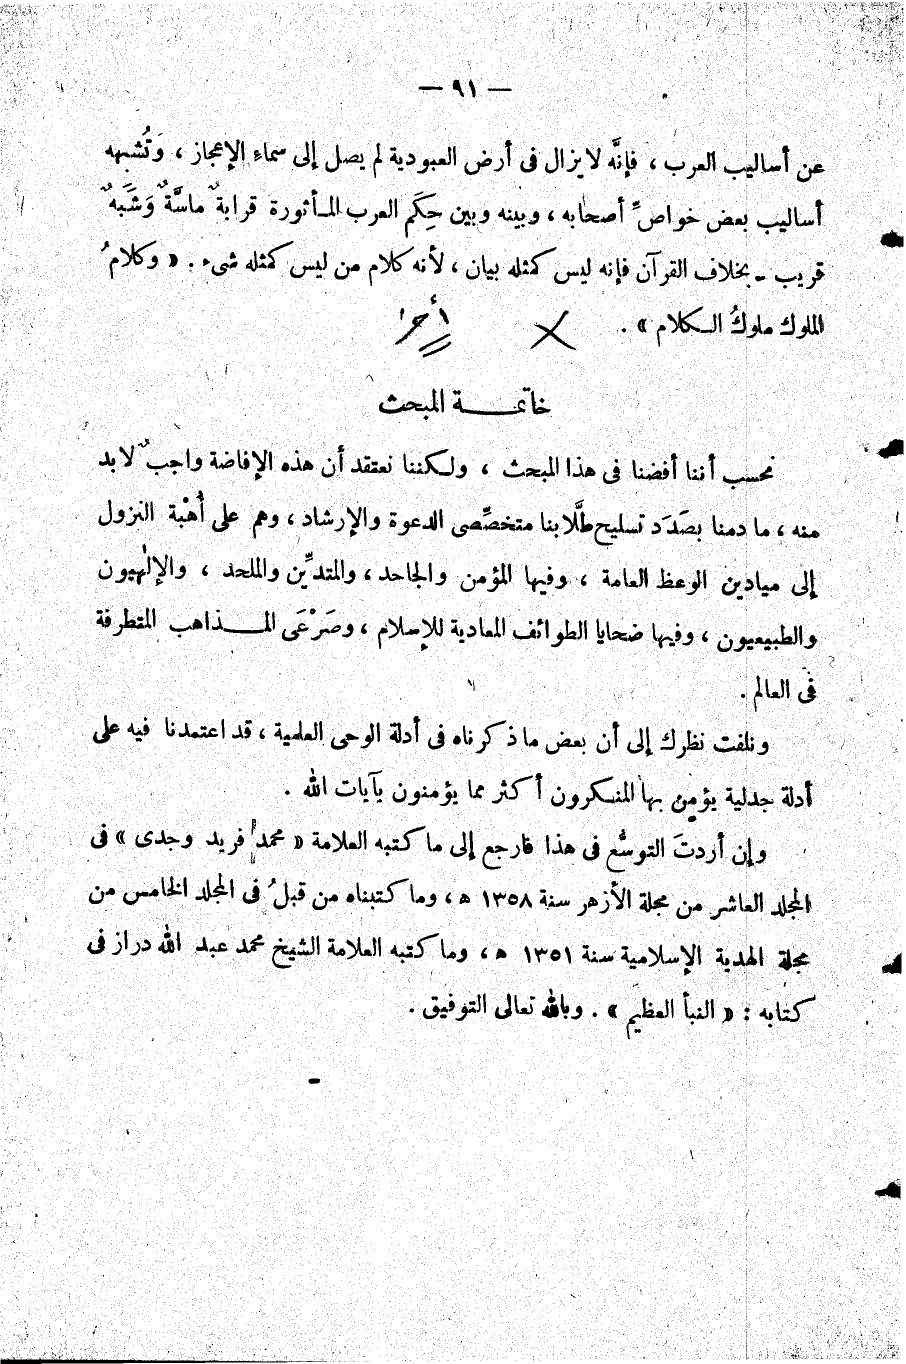 — ٩١ —
عن أساليب العرب ، فإنَّه لا يزال فى أرض العبودية لم يصل إلى سماء الإعجاز ، وَتُشبهه
أساليب بعض خواصِّ أصحابه ، وبينه وبين حِكَم العرب المأثورة قرابةٌ ماسَّةٌ وَشَبَهٌ
قريب - بخلاف القرآن فإنه ليس كمثله بيان ، لأنه كلام من ليس كمثله شىء . « وكلامُ
الملوك ملوكُ الكلام » .
خاتمة المبحث
نحسب أننا أفضنا فى هذا المبحث ، ولكننا نعتقد أن هذه الإفاضة واجبٌ لابد
منه ، ما دمنا بصَدَد تسليح طلَّابنا متخصِّصى الدعوة والإرشاد ، وهم على أُهْبة النزول
إلى ميادين الوعظ العامة ، وفيها المؤمن والجاحد ، والمتديِّن والملحد ، والإلٰهيون
والطبيعيون ، وفيها ضحايا الطوائف المعادية للإسلام ، وصَرْعَى المذاهب المتطرفة
فى العالم .
ونلفت نظرك إلى أن بعض ما ذكرناه فى أدلة الوحى العلمية ، قد اعتمدنا فيه على
أدلة جدلية يؤمن بها المنكرون أكثر مما يؤمنون بآيات الله .
وإن أردتَ التوسُّع فى هذا فارجع إلى ما كتبه العلامة « محمد فريد وجدى » فى
المجلد العاشر من مجلة الأزهر سنة ١٣٥٨ ه ، وما كتبناه من قبلُ فى المجلد الخامس من
مجلة الهدية الإسلامية سنة ١٣٥١ ه ، وما كتبه العلامة الشيخ محمد عبد الله دراز فى
كتابه : « النبأ العظيم » . وبالله تعالى التوفيق .